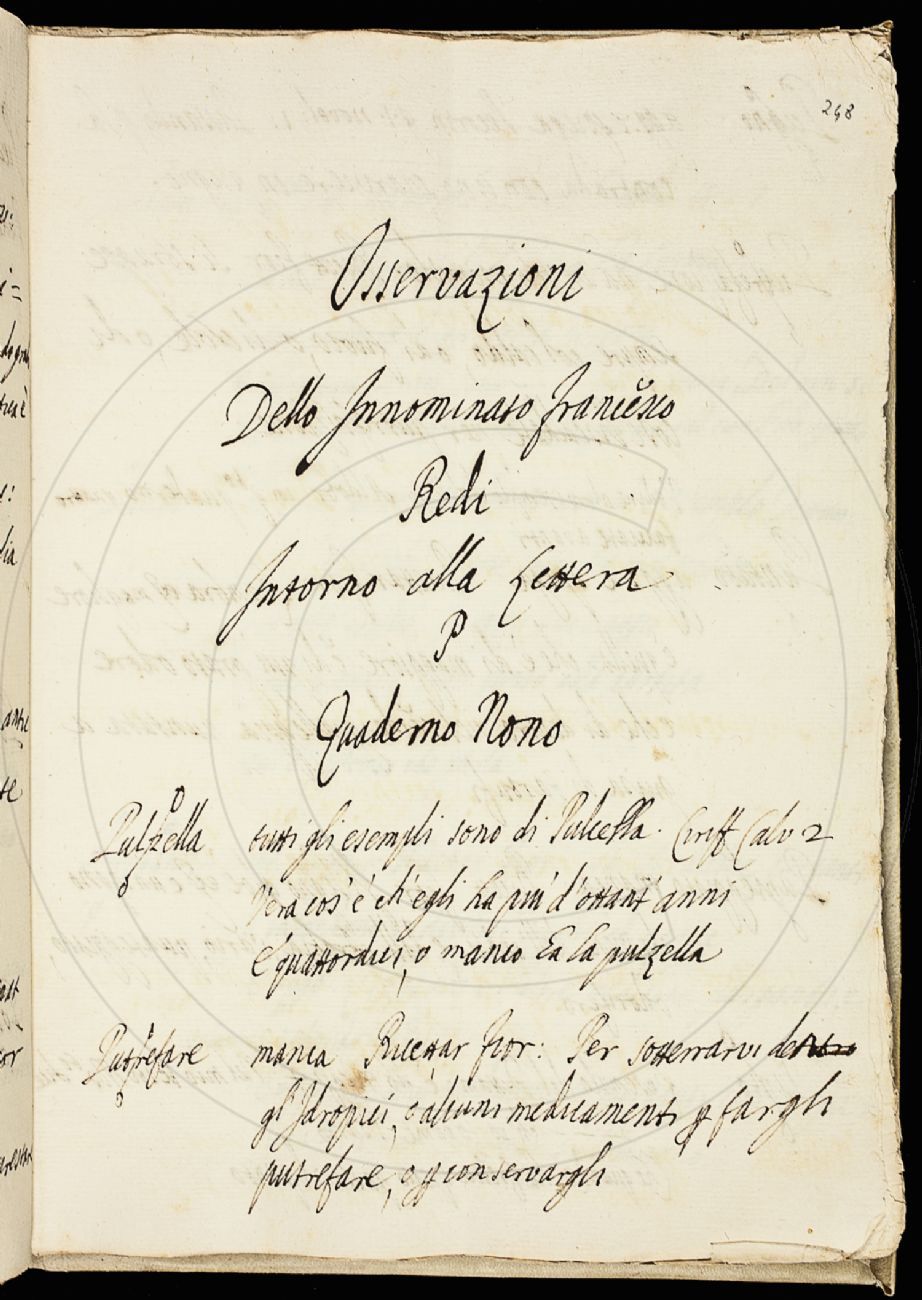 248
Osservazioni
Dello Innominato Francesco
Redi
Intorno alla Lettera
P
Quaderno Nono
Pulzella tutti gli esempli sono di Pulcella. Ciriff Calv 2
Vera cos' è ch' egli ha più d'ottant' anni
E quattordici, o manco ha la pulzella
Putrefare manca Ricettar Fior: Per sotterrarvi dentro
gl' Idropici, e alcuni medicamenti p fargli
putrefare, o p conservargli